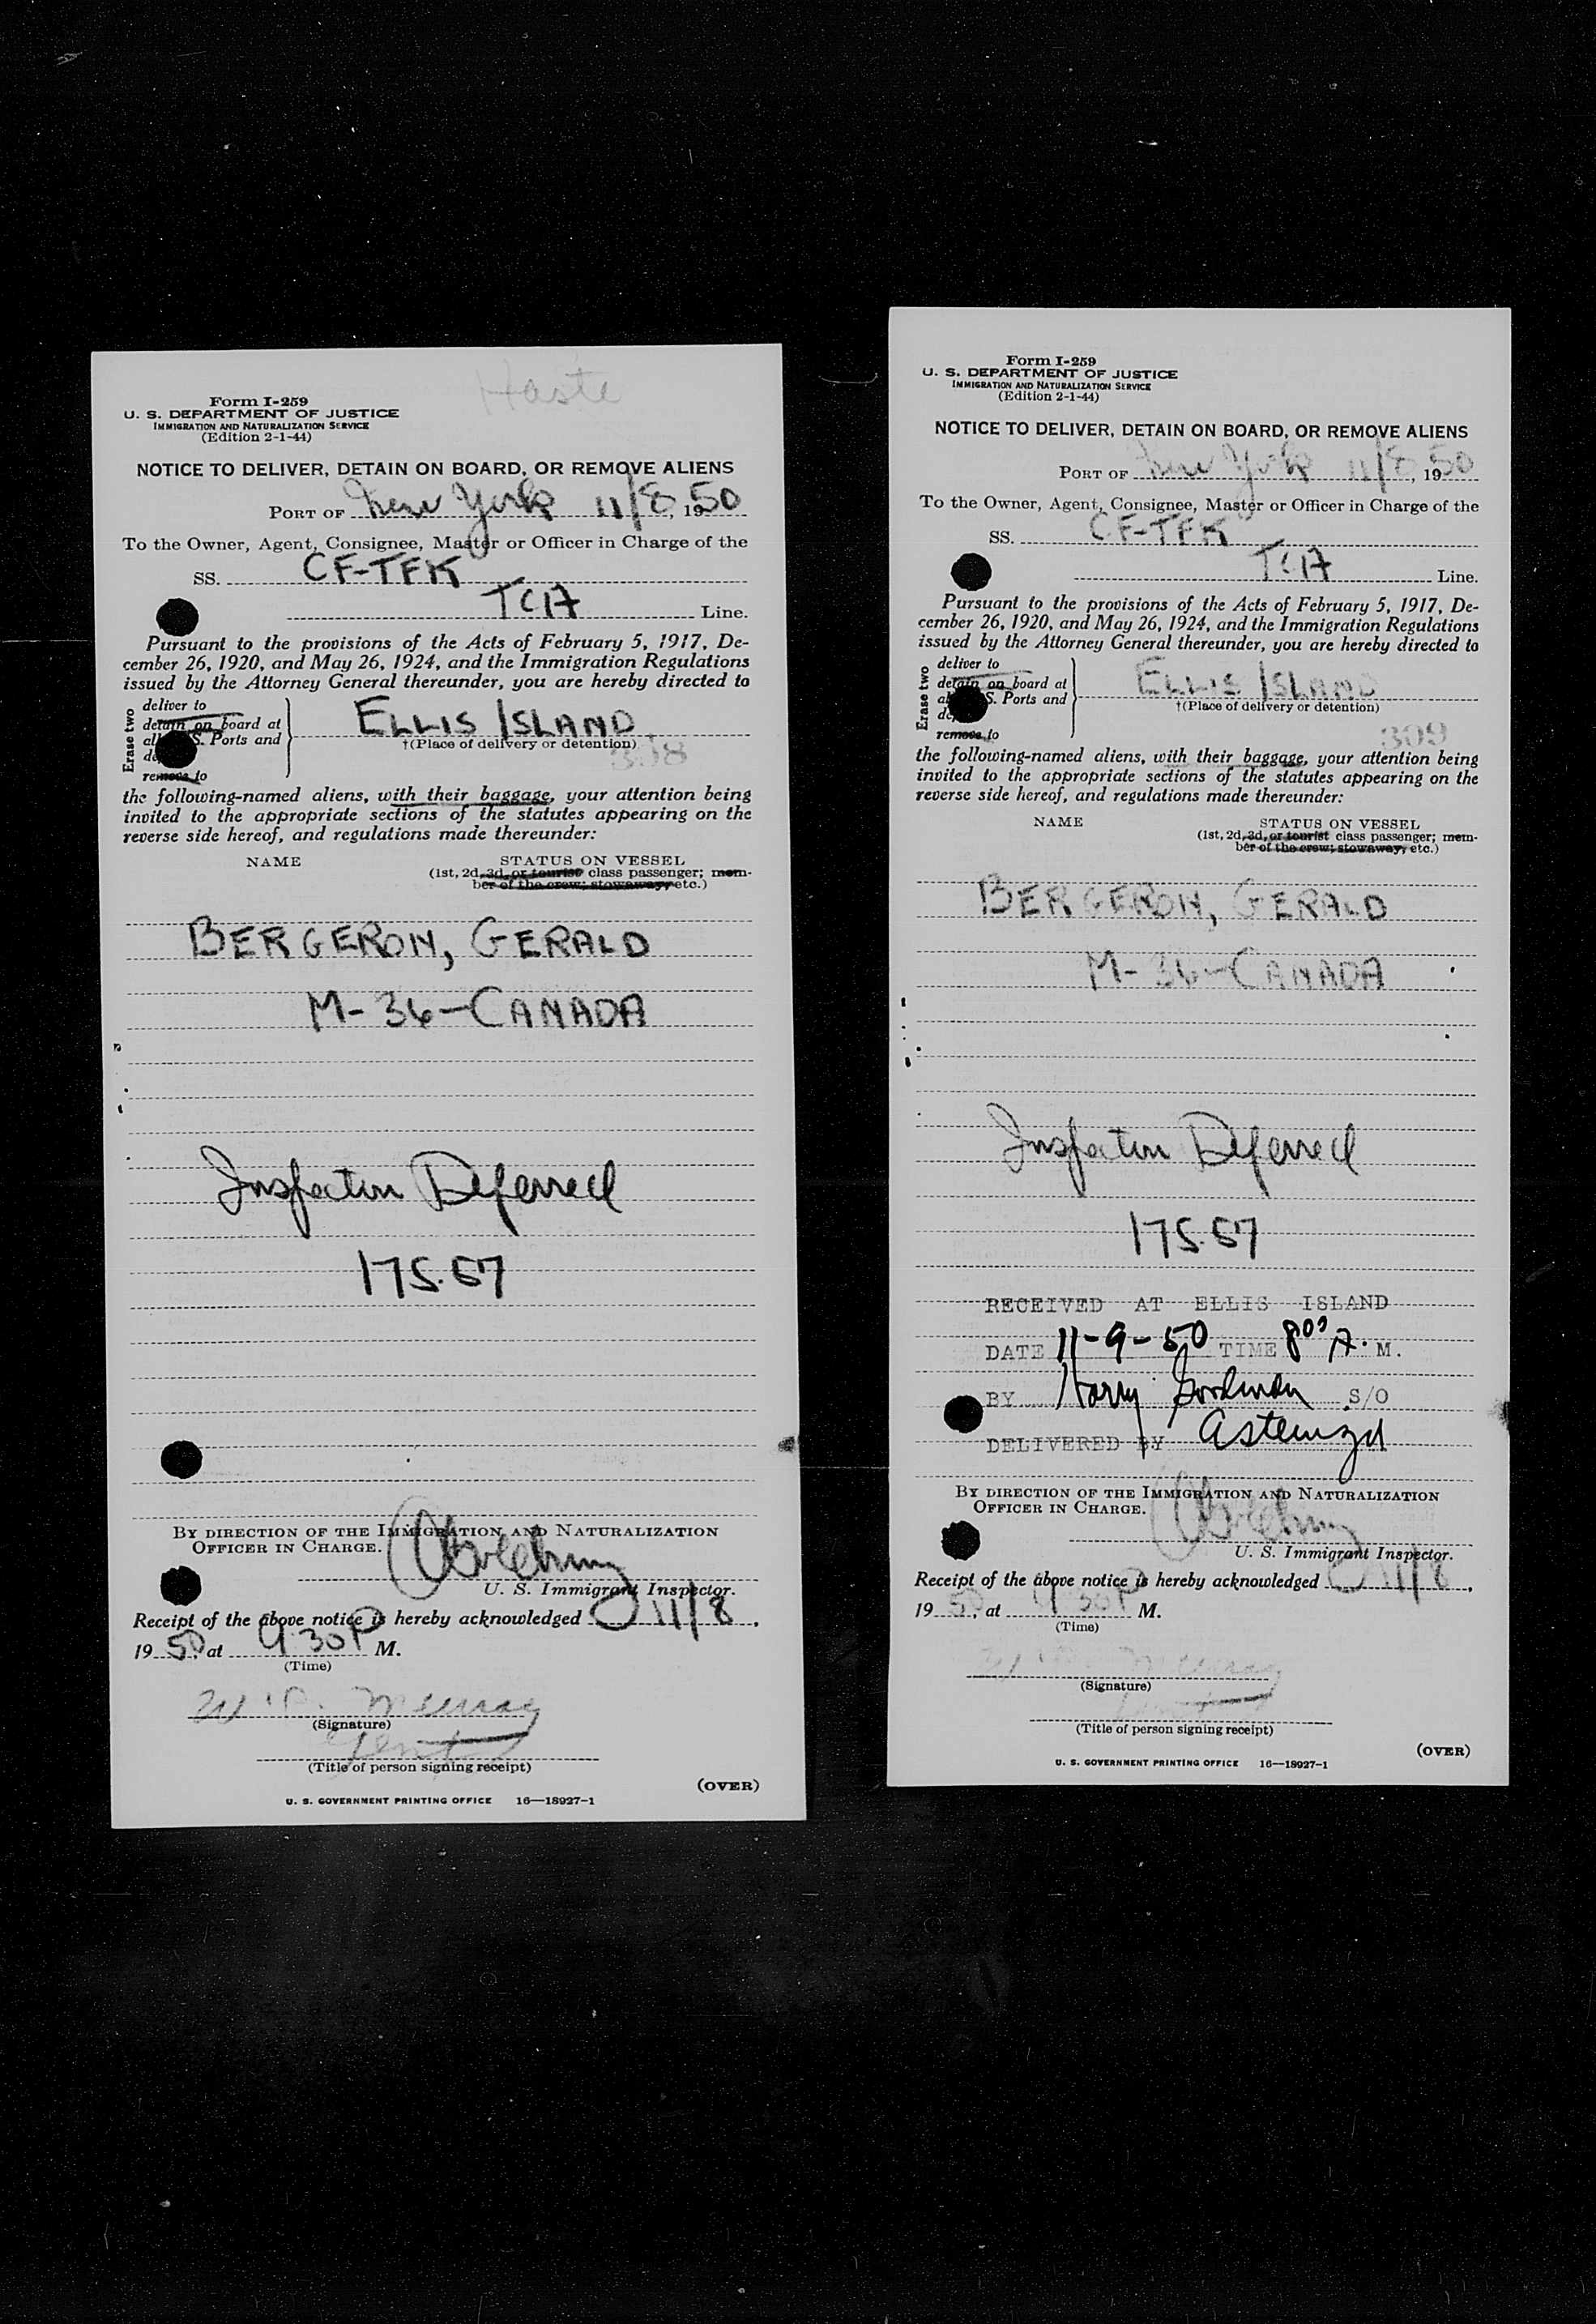 Haste
Form I-259
U. S. DEPARTMENT OF JUSTICE
IMMIGRATION AND NATURALIZATION SERVICE
(Edition 2-1-44)
NOTICE TO DELIVER, DETAIN ON BOARD, OR REMOVE ALIENS
PORT OF New York 11/8, 1950
To the Owner, Agent, Consignee, Master or Officer in Charge of the
SS. CF-TFK
TCA Line.
Pursuant to the provisions of the Acts of February 5, 1917, De-
cember 26, 1920, and May 26, 1924, and the Immigration Regulations
issued by the Attorney General thereunder, you are hereby directed to
Erase two
deliver to
detain on board at
all S. Ports and
remove to
ELLIS ISLAND
†(Place of delivery or detention)
308
the following-named aliens, with their baggage, your attention being
invited to the appropriate sections of the statutes appearing on the
reverse side hereof, and regulations made thereunder:
NAME STATUS ON VESSEL
(1st, 2d, 3d, or tourist class passenger; mem-
ber of the crew; stowaway, etc.)
BERGERON, GERALD
M-36-CANADA
Inspection Deferred
175.57
BY DIRECTION OF THE IMMIGRATION AND NATURALIZATION
OFFICER IN CHARGE.
U. S. Immigrant Inspector.
Receipt of the above notice is hereby acknowledged 11/8,
1950, at 9:30 P M.
(Time)
W. P. Murray
(Signature)
(Title of person signing receipt)
(OVER)
U. S. GOVERNMENT PRINTING OFFICE 16—18927-1
Form I-259
U. S. DEPARTMENT OF JUSTICE
IMMIGRATION AND NATURALIZATION SERVICE
(Edition 2-1-44)
NOTICE TO DELIVER, DETAIN ON BOARD, OR REMOVE ALIENS
PORT OF New York 11/8, 1950
To the Owner, Agent, Consignee, Master or Officer in Charge of the
SS. CF-TFK
TCA Line.
Pursuant to the provisions of the Acts of February 5, 1917, De-
cember 26, 1920, and May 26, 1924, and the Immigration Regulations
issued by the Attorney General thereunder, you are hereby directed to
Erase two
deliver to
detain on board at
S. Ports and
remove to
ELLIS ISLAND
†(Place of delivery or detention)
309
the following-named aliens, with their baggage, your attention being
invited to the appropriate sections of the statutes appearing on the
reverse side hereof, and regulations made thereunder:
NAME STATUS ON VESSEL
(1st, 2d, 3d, or tourist class passenger; mem-
ber of the crew; stowaway, etc.)
BERGERON, GERALD
M-36-CANADA
Inspection Deferred
175.57
RECEIVED AT ELLIS ISLAND
DATE 11-9-50 TIME 8 00 A. M.
BY Harry Goodman S/O
DELIVERED BY
BY DIRECTION OF THE IMMIGRATION AND NATURALIZATION
OFFICER IN CHARGE.
U. S. Immigrant Inspector.
Receipt of the above notice is hereby acknowledged 11/8,
1950, at 9:30 P M.
(Time)
W. P. Murray
(Signature)
(Title of person signing receipt)
(OVER)
U. S. GOVERNMENT PRINTING OFFICE 16—18927-1